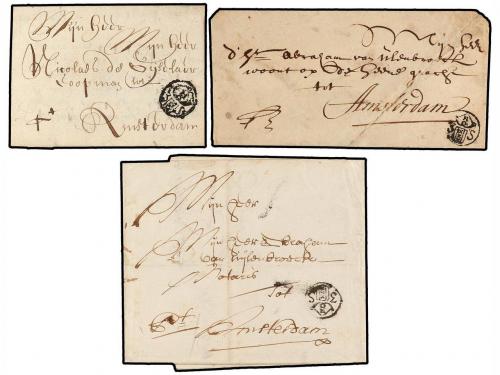 Mijn Heer
Mijn Heer
Nicolaes de
Coopman tot
Amsterdam
Mijn Heer
d'Hr. Abraham van Uilenbroeck
woont op de Heere gracht
tot
Amsterdam
Mijn Heer
Mijn Heer Abraham
van Uijlenbroeck
Notaris
Tot
Amsterdam